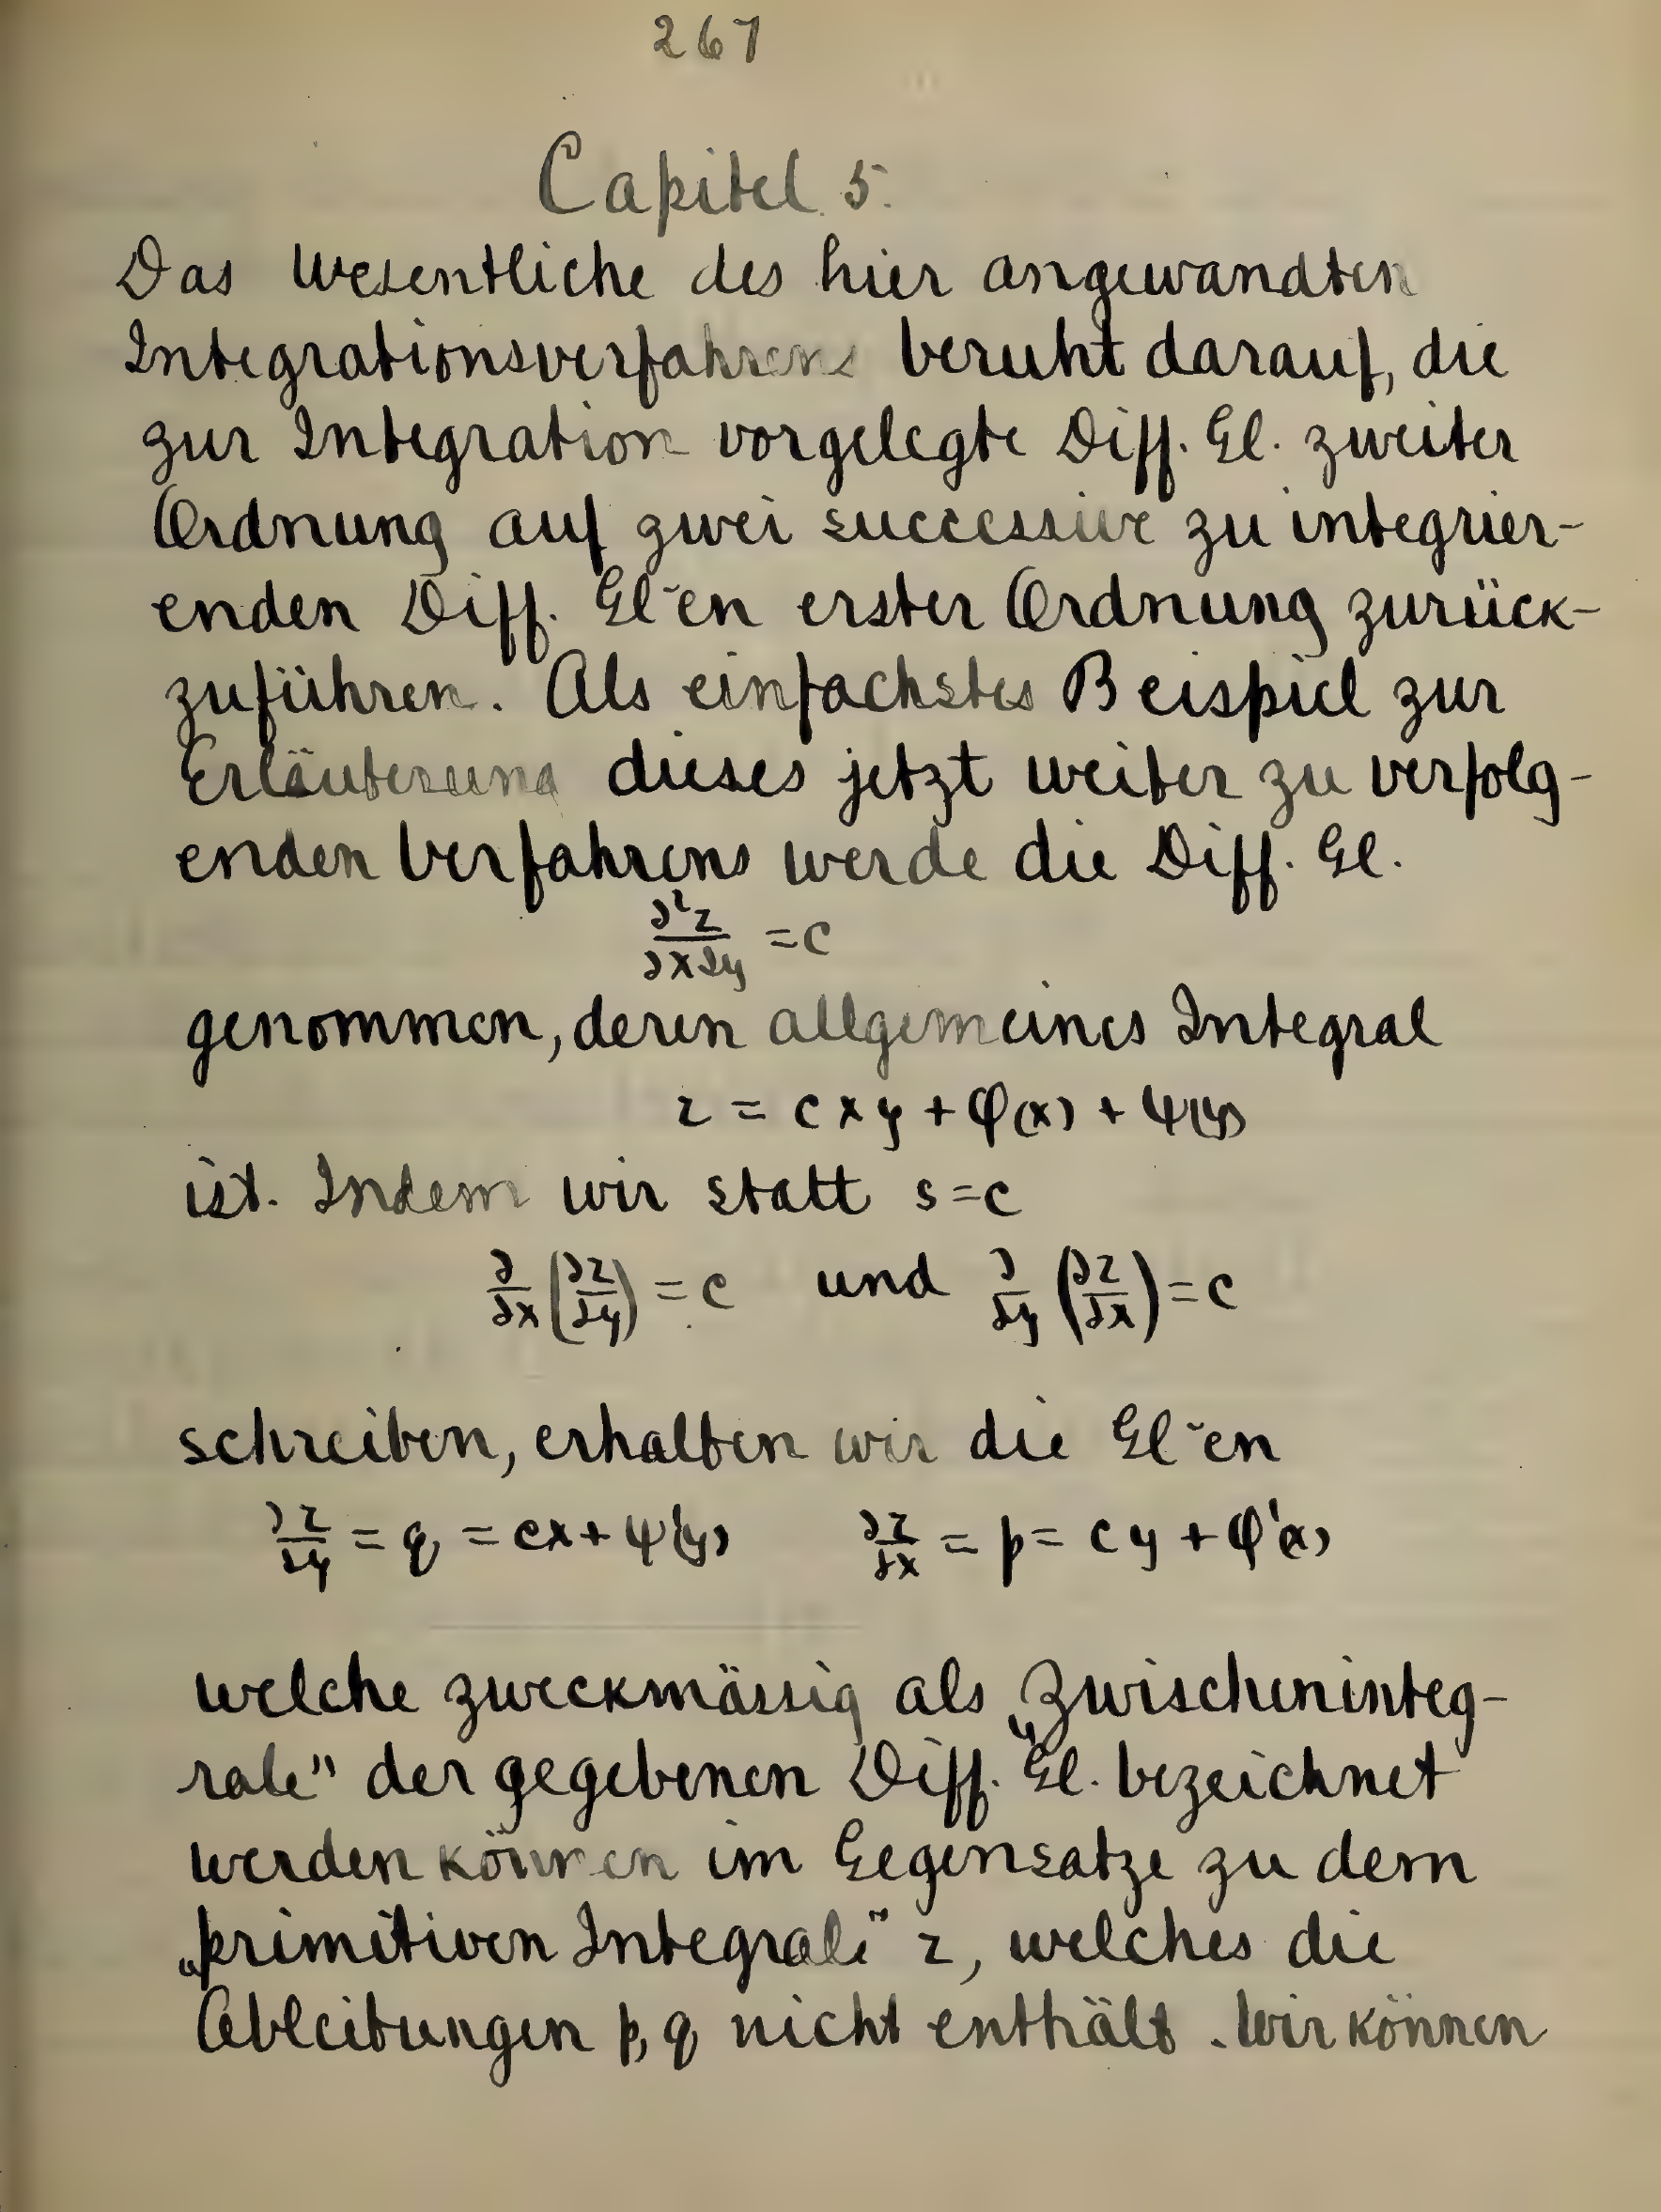 267
Capitel 5.
Das Wesentliche des hier angewandten
Integrationsverfahrens beruht darauf, die
zur Integration vorgelegte Diff. Gl. zweiter
Ordnung auf zwei successive zu integrier-
enden Diff. Gl~en erster Ordnung zurück-
zuführen. Als einfachstes Beispiel zur
Erläuterung dieses jetzt weiter zu verfolg-
enden Verfahrens werde die Diff. Gl.
∂²z/∂x∂y = c
genommen, deren allgemeines Integral
z = cxy + φ(x) + ψ(y)
ist. Indem wir statt s=c
∂/∂x (∂z/∂y) = c und ∂/∂y (∂z/∂x) = c
schreiben, erhalten wir die Gl~en
∂z/∂y = q = cx + ψ'(y) ∂z/∂x = p = cy + φ'(x)
welche zweckmässig als „Zwischeninteg-
rale" der gegebenen Diff. Gl. bezeichnet
werden können im Gegensatze zu dem
„primitiven Integrale" z, welches die
Ableitungen p, q nicht enthält. Wir können